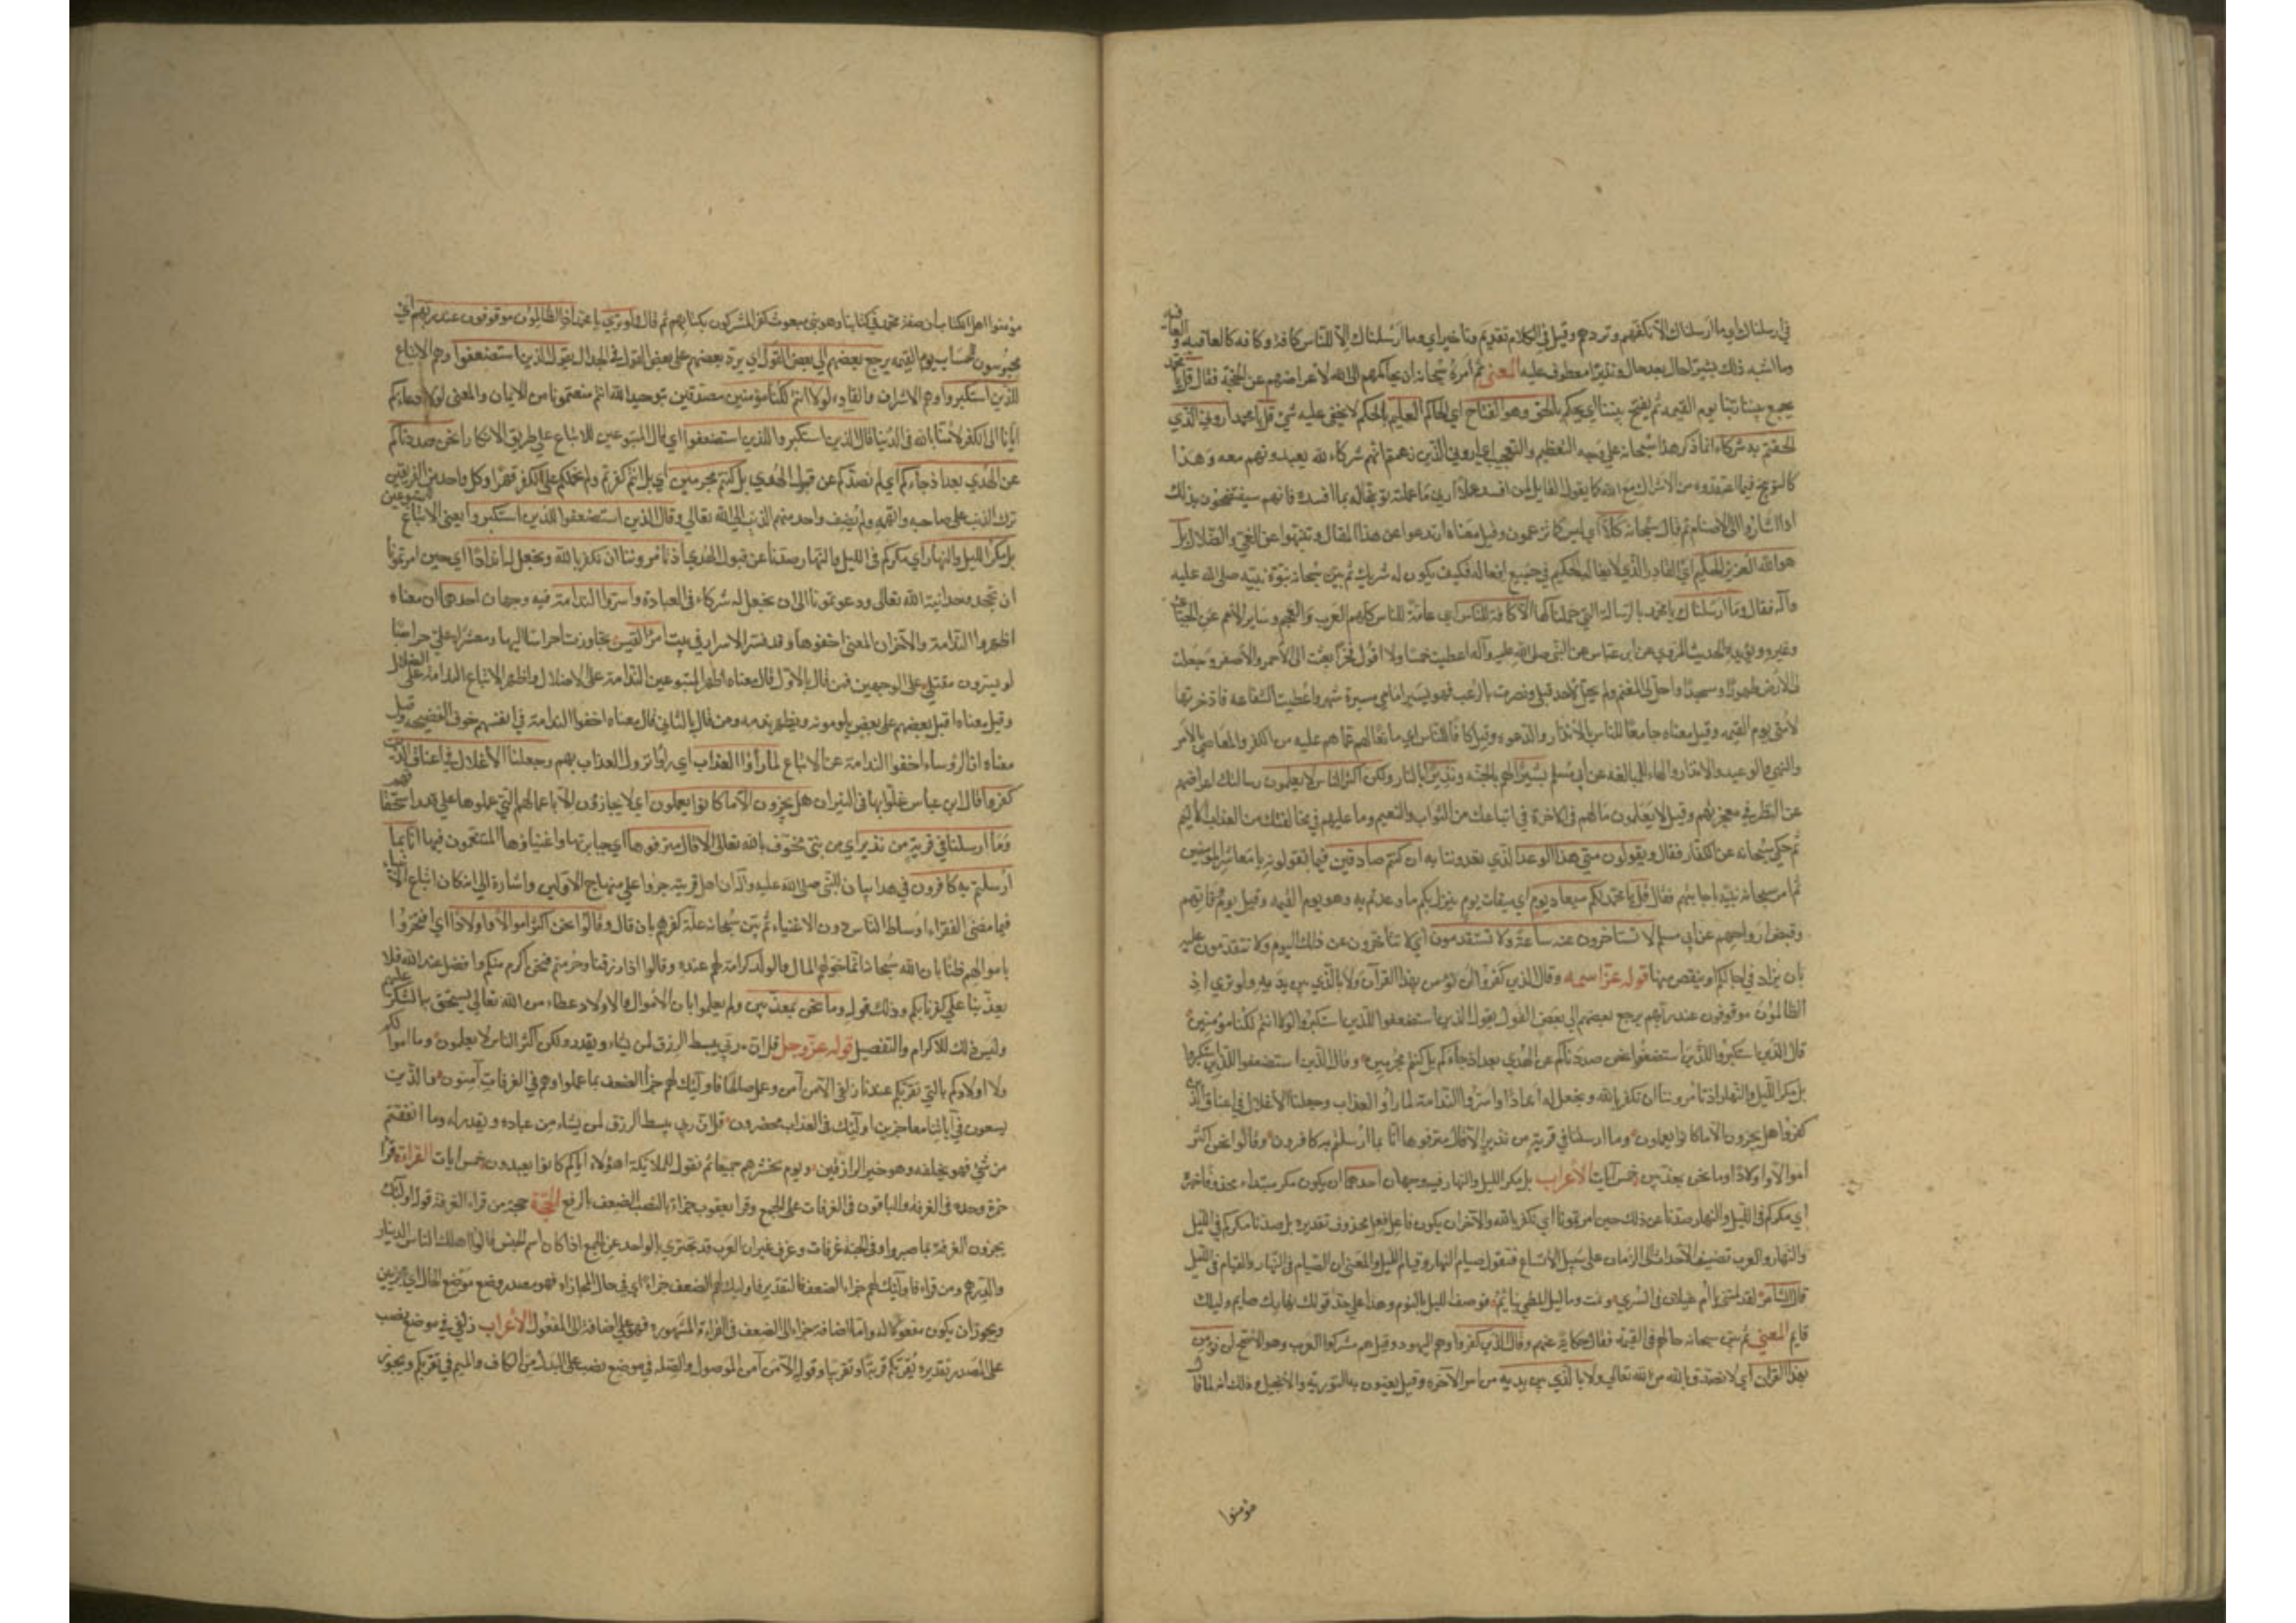 في ارسلناك اي وما ارسلناك الا تكفهم وتردهم وقيل في الكلام تقديم وتاخير اي وما ارسلناك الا للناس كافة وكافه كالعاقبه والعافيه
وما اشبه ذلك بشيرا حال بعد حال ونذيرا معطوف عليه المعنى ثم امره سبحانه ان يحاكمهم الى الله لاعراضهم عن الحجة فقال قل يا محمد
يجمع بيننا ربنا يوم القيمه ثم يفتح بيننا اي يحكم بالحق وهو الفتاح اي الحاكم العليم بالحكم لا يخفى عليه شئ قل يا محمد اروني الذي
الحقتم به شركاء انما ذكر هذا سبحانه على وجه التعظيم والتعجيب اي اروني الذين زعمتم انهم شركاء لله يعبدونهم معه وهذا
كالتوبيخ فيما اعتقدوه من الاشراك مع الله كما يقول القايل لمن افسد عملا ارني ما عملته توبيخا له بما افسده فانهم سيفتضحون بذلك
اذا اشاروا الى الاصنام ثم قال سبحانه كلا اي ليس كما تزعمون وقيل معناه ارتدعوا عن هذا المقال وتنبهوا عن الغي والضلال بل
هو الله العزيز الحكيم اي القادر الذي لا يغالب الحكيم في جميع افعاله فكيف يكون له شريك ثم بين سبحانه نبوة نبيه صلى الله عليه
وآله فقال وما ارسلناك يا محمد بالرسالة التي حملناكها الا كافة للناس اي عامة للناس كلهم العرب والعجم وساير الامم عن الجبائي
وغيره ويؤيده الحديث المروي عن ابن عباس عن النبي صلى الله عليه وآله اعطيت خمسا ولا اقول فخرا بعثت الى الاحمر والاصفر وجعلت
لي الارض طهورا ومسجدا واحل لي المغنم ولم يحل لاحد قبلي ونصرت بالرعب فهو يسير امامي مسيرة شهر واعطيت الشفاعه فادخرتها
لامتي يوم القيمه وقيل معناه جامعا للناس بالانذار والدعوه وقيل كافا للناس اي مانعا لهم عما هم عليه من الكفر والمعاصي بالامر
والنهي والوعيد والانذار والهاء للمبالغه عن ابي مسلم بشيرا لهم بالجنه ونذيرا بالنار ولكن اكثر الناس لا يعلمون رسالتك لاعراضهم
عن النظر في معجزتهم وقيل لا يعلمون ما لهم في الاخرة في اتباعك من الثواب والنعيم وما عليهم في مخالفتك من العذاب الاليم
ثم حكى سبحانه عن الكفار فقال ويقولون متى هذا الوعد الذي تعدوننا به ان كنتم صادقين فيما تقولونه يا معاشر المؤمنين
ثم امر سبحانه نبيه اجابتهم فقال قل يا محمد لكم ميعاد يوم اي ميقات يوم ينزل بكم ما وعدتم به وهو يوم القيمه وقيل يوم وفاتهم
وقبض ارواحهم عن ابي مسلم لا تستاخرون عنه ساعة ولا تستقدمون اي لا تتاخرون عن ذلك اليوم ولا تتقدمون عليه
بان يزاد في اجالكم او ينقص منها قوله عز اسمه وقال الذين كفروا لن نؤمن بهذا القرآن ولا بالذي بين يديه ولو ترى اذ
الظالمون موقوفون عند ربهم يرجع بعضهم الى بعض القول يقول الذين استضعفوا للذين استكبروا لولا انتم لكنا مؤمنين
قال الذين استكبروا للذين استضعفوا انحن صددناكم عن الهدي بعد اذ جاءكم بل كنتم مجرمين وقال الذين استضعفوا للذين استكبروا
بل مكر الليل والنهار اذ تامروننا ان نكفر بالله ونجعل له اندادا واسروا الندامة لما راوا العذاب وجعلنا الاغلال في اعناق الذين
كفروا هل يجزون الا ما كانوا يعملون وما ارسلنا في قرية من نذير الا قال مترفوها انا بما ارسلتم به كافرون وقالوا نحن اكثر
اموالا واولادا وما نحن بمعذبين خمس ايات الاعراب بل مكر الليل والنهار فيه وجهان احدهما ان يكون مكر مبتداء محذوفا خبره
اي مكركم في الليل والنهار صدنا عن ذلك حين امرتمونا اي نكفر بالله والاخر ان يكون فاعل فعل محذوف تقديره بل صدنا مكركم في الليل
والنهار والعرب تضيف الاحداث الى الزمان على سبيل الاتساع فتقول صيام النهار وقيام الليل والمعنى ان الصيام في النهار والقيام في الليل
قال الشاعر لقد لمتنا يا ام غيلان في السري ونمت وما ليل المطي بنائم فوصف الليل بالنوم وهذا على حد قولك نهارك صايم وليلك
قايم المعنى ثم بين سبحانه حالهم في القيمه فقال حكاية عنهم وقال الذين كفروا وهم اليهود وقيل هم مشركوا العرب وهو الاصح لن نؤمن
بهذا القران اي لا نصدق بانه من الله تعالى ولا بالذي بين يديه من امر الاخره وقيل يعنون به التوريه والانجيل وذلك انه لما قال
مؤمنوا
مؤمنوا اهل الكتاب ان صفة محمد في كتابنا وهو نبي مبعوث كفر المشركون بكتابهم ثم قال ولو تري يا محمد اذ الظالمون موقوفون عند ربهم اي
محبوسون للحساب يوم القيمه يرجع بعضهم الى بعض القول اي يرد بعضهم على بعض القول في الجدال يقول الذين استضعفوا وهم الاتباع
للذين استكبروا وهم الاشراف والقاده لولا انتم لكنا مؤمنين مصدقين بتوحيد الله انتم منعتمونا من الايمان والمعنى لولا دعاءكم
ايانا الى الكفر لامنا بالله في الدنيا قال الذين استكبروا للذين استضعفوا اي قال المتبوعين للاتباع على طريق الانكار انحن صددناكم
عن الهدي بعد اذ جاءكم اي لم نصدكم عن قبول الهدي بل كنتم مجرمين اي بل انتم كفرتم ولم نحملكم على الكفر قهرا وكل واحد من الفريقين
ترك الذنب على صاحبه واتهمه ولم يضف واحد منهم الذنب الى الله تعالى وقال الذين استضعفوا للذين استكبروا يعني الاتباع للمتبوعين
بل مكر الليل والنهار اي مكركم في الليل والنهار صدنا عن قبول الهدي اذ تامروننا ان نكفر بالله ونجعل له اندادا اي حين امرتمونا
ان نجحد وحدانية الله تعالى ودعوتمونا الى ان نجعل له شركاء في العبادة واسروا الندامة فيه وجهان احدهما ان معناه
اظهروا الندامة والآخر ان المعنى اخفوها وقد فسر الاسرار في بيت امرا القيس تجاوزت احراسا اليها ومعشرا علي حراصا
لو يسرون مقتلي على الوجهين فمن قال بالاول قال معناه اظهر المتبوعين الندامة على الاضلال واظهر الاتباع الندامة على الضلال
وقيل معناه اقبل بعضهم على بعض يلومونه ويظهر ندمه ومن قال بالثاني قال معناه اخفوا الندامة في انفسهم خوف الفضيحه وقيل
معناه ان الرؤساء اخفوا الندامة عن الاتباع لما رأوا العذاب اي راوا نزول العذاب بهم وجعلنا الاغلال في اعناق الذين
كفروا قال ابن عباس غلوا بها في النيران هل يجزون الا ما كانوا يعملون اي لا يجازون الا باعمالهم التي عملوها على قدر استحقاقهم
وما ارسلنا في قرية من نذير اي من نبي مخوف بالله تعالى الا قال مترفوها اي جبابرتها واغنياؤها المتنعمون فيها انا بما
ارسلتم به كافرون في هذا بيان للنبي صلى الله عليه وآله ان اهل قريته جروا على منهاج الاولين واشارة الى انه كان اتباع الانبياء
فيما مضى الفقراء اوساط الناس دون الاغنياء ثم بين سبحانه علة كفرهم بان قال وقالوا نحن اكثر اموالا واولادا اي افتخروا
باموالهم ظنا بان الله سبحانه انما خولهم المال والولد كرامة لهم عنده وقالوا اذا رزقنا وحرمتم فنحن اكرم منكم وافضل عند الله فلا
يعذبنا على كفرنا بكم وذلك قوله وما نحن بمعذبين ولم يعلموا بان الاموال والاولاد عطاء من الله تعالى يستحق به الشكر عليهم
وليس ذلك للاكرام والتفضيل قوله عز وجل قل ان ربي يبسط الرزق لمن يشاء ويقدر ولكن اكثر الناس لا يعلمون وما اموالكم
ولا اولادكم بالتي تقربكم عندنا زلفي الا من آمن وعمل صالحا فاولئك لهم جزا الضعف بما عملوا وهم في الغرفات آمنون والذين
يسعون في آياتنا معاجزين اولئك في العذاب محضرون قل ان ربي يبسط الرزق لمن يشاء من عباده ويقدر له وما انفقتم
من شئ فهو يخلفه وهو خير الرازقين ويوم نحشرهم جميعا ثم نقول للملائكة اهؤلاء اياكم كانوا يعبدون خمس ايات القراءة قرا
حمزة وحده في الغرفة والباقون في الغرفات على الجمع وقرا يعقوب جزاء بالنصب الضعف بالرفع الحجة حجة من قراء الغرفة قوله اولئك
يجزون الغرفة بما صبروا وفي الجنة غرفات وغرف غير ان العرب قد تجتزي بالواحد عن الجمع اذا كان اسم الجنس قالوا اهلك الناس الدينار
والدرهم ومن قراء فاولئك لهم جزاء الضعف فالتقدير فاولئك لهم الضعف جزاء اي في حال المجازاه فهو مصدر وضع موضع الحال اي مجزيين
ويجوز ان يكون مفعولا له واما اضافة جزاء الى الضعف في القراءة المشهورة فهو على اضافة الى المفعول الاعراب زلفي في موضع نصب
على المصدر تقديره تقربكم قربة وتقريبا وقوله الا من آمن الموصول والصله في موضع نصب على البدل من الكاف والميم في تقربكم ويجوز